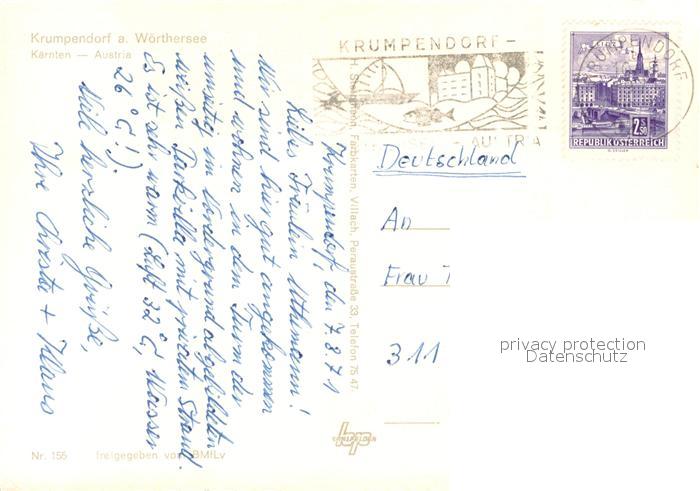 Krumpendorf a. Wörthersee
Kärnten — Austria
KRUMPENDORF –
AUSTRIA
KRUMPENDORF
2.50
REPUBLIK ÖSTERREICH
Krumpendorf, den 7.8.71
Liebes Fräulein Uthmann!
Wir sind hier gut angekommen
und wohnen in dem Turm der
unseitig im Vordergrund abgebildeten
weißen Parkvilla mit privatem Strand.
Es ist sehr warm (Luft 32°C, Wasser
26°C!).
Viele herzliche Grüße,
Ihre Christa + Klaus
Farbkarten, Villach, Peraustraße 33, Telefon 75 47
Deutschland
An
Frau
311
privacy protection
Datenschutz
Nr. 155
freigegeben von BMfLv